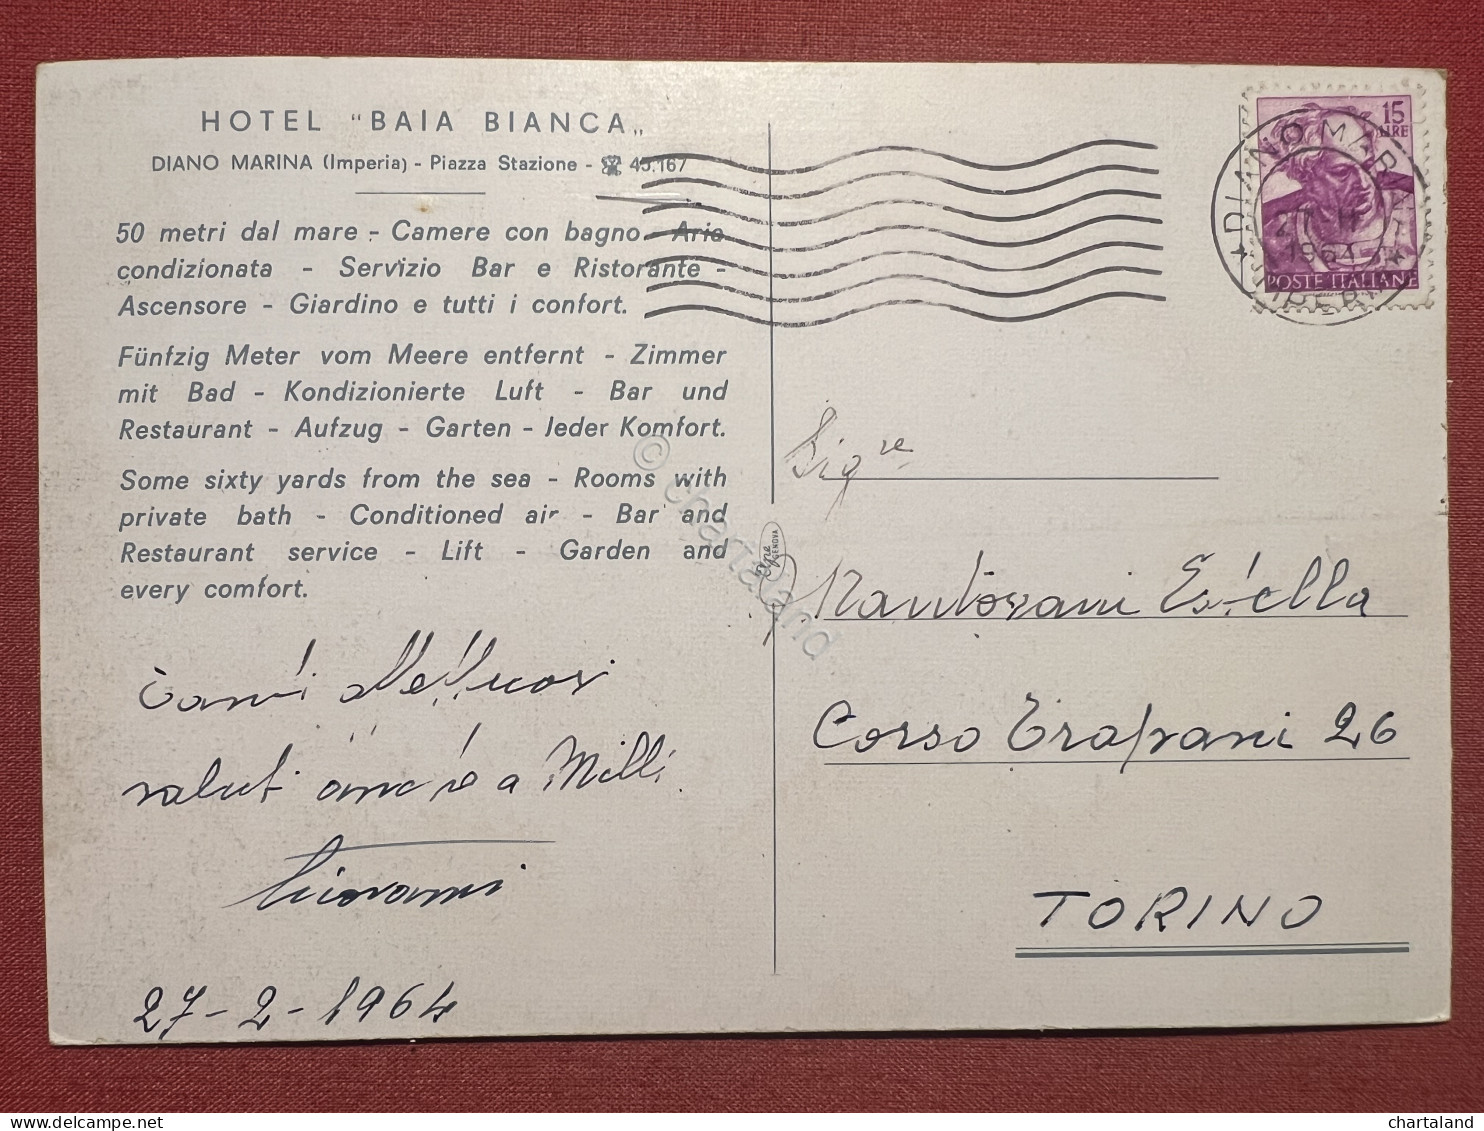 HOTEL "BAIA BIANCA"
DIANO MARINA (Imperia) - Piazza Stazione - ☎ 45.167
50 metri dal mare - Camere con bagno - Aria
condizionata - Servizio Bar e Ristorante -
Ascensore - Giardino e tutti i confort.
Fünfzig Meter vom Meere entfernt - Zimmer
mit Bad - Kondizionierte Luft - Bar und
Restaurant - Aufzug - Garten - Jeder Komfort.
Some sixty yards from the sea - Rooms with
private bath - Conditioned air - Bar and
Restaurant service - Lift - Garden and
every comfort.
Tanti affettuosi
saluti anche a Milli.
Giovanni
27-2-1964
15
LIRE
POSTE ITALIANE
DIANO MARINA
1964
IMPERIA
Sig.re
Mantovani Estella
Corso Trapani 26
TORINO
GENOVA
© chartaland
delcampe.net
chartaland